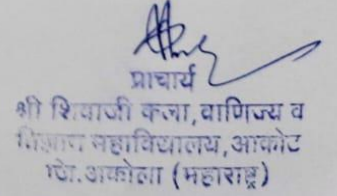 प्राचार्य
श्री शिवाजी कला,वाणिज्य व
विज्ञान महाविद्यालय,आकोट
जि.अकोला (महाराष्ट्र)